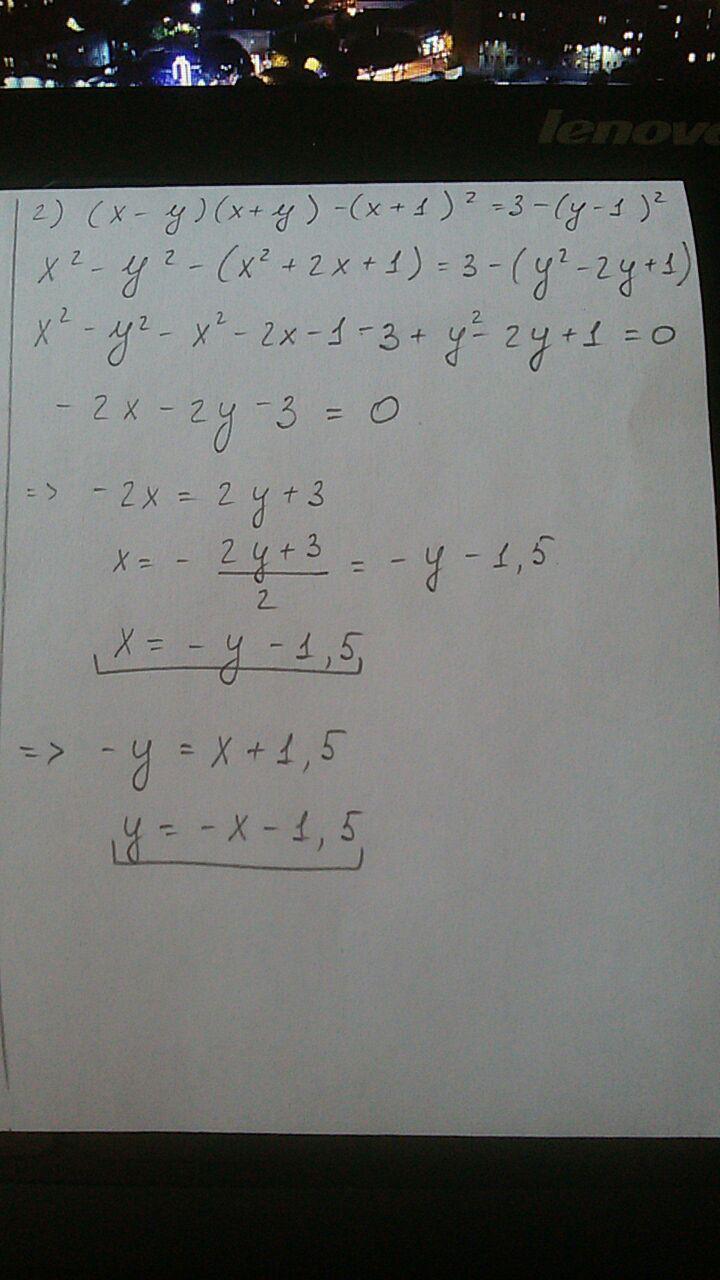 lenovo
2) (x - y)(x + y) - (x + 1)² = 3 - (y - 1)²
x² - y² - (x² + 2x + 1) = 3 - (y² - 2y + 1)
x² - y² - x² - 2x - 1 - 3 + y² - 2y + 1 = 0
- 2x - 2y - 3 = 0
=> - 2x = 2y + 3
x = - \frac{2y + 3}{2} = - y - 1,5
x = - y - 1,5
=> - y = x + 1,5
y = - x - 1,5